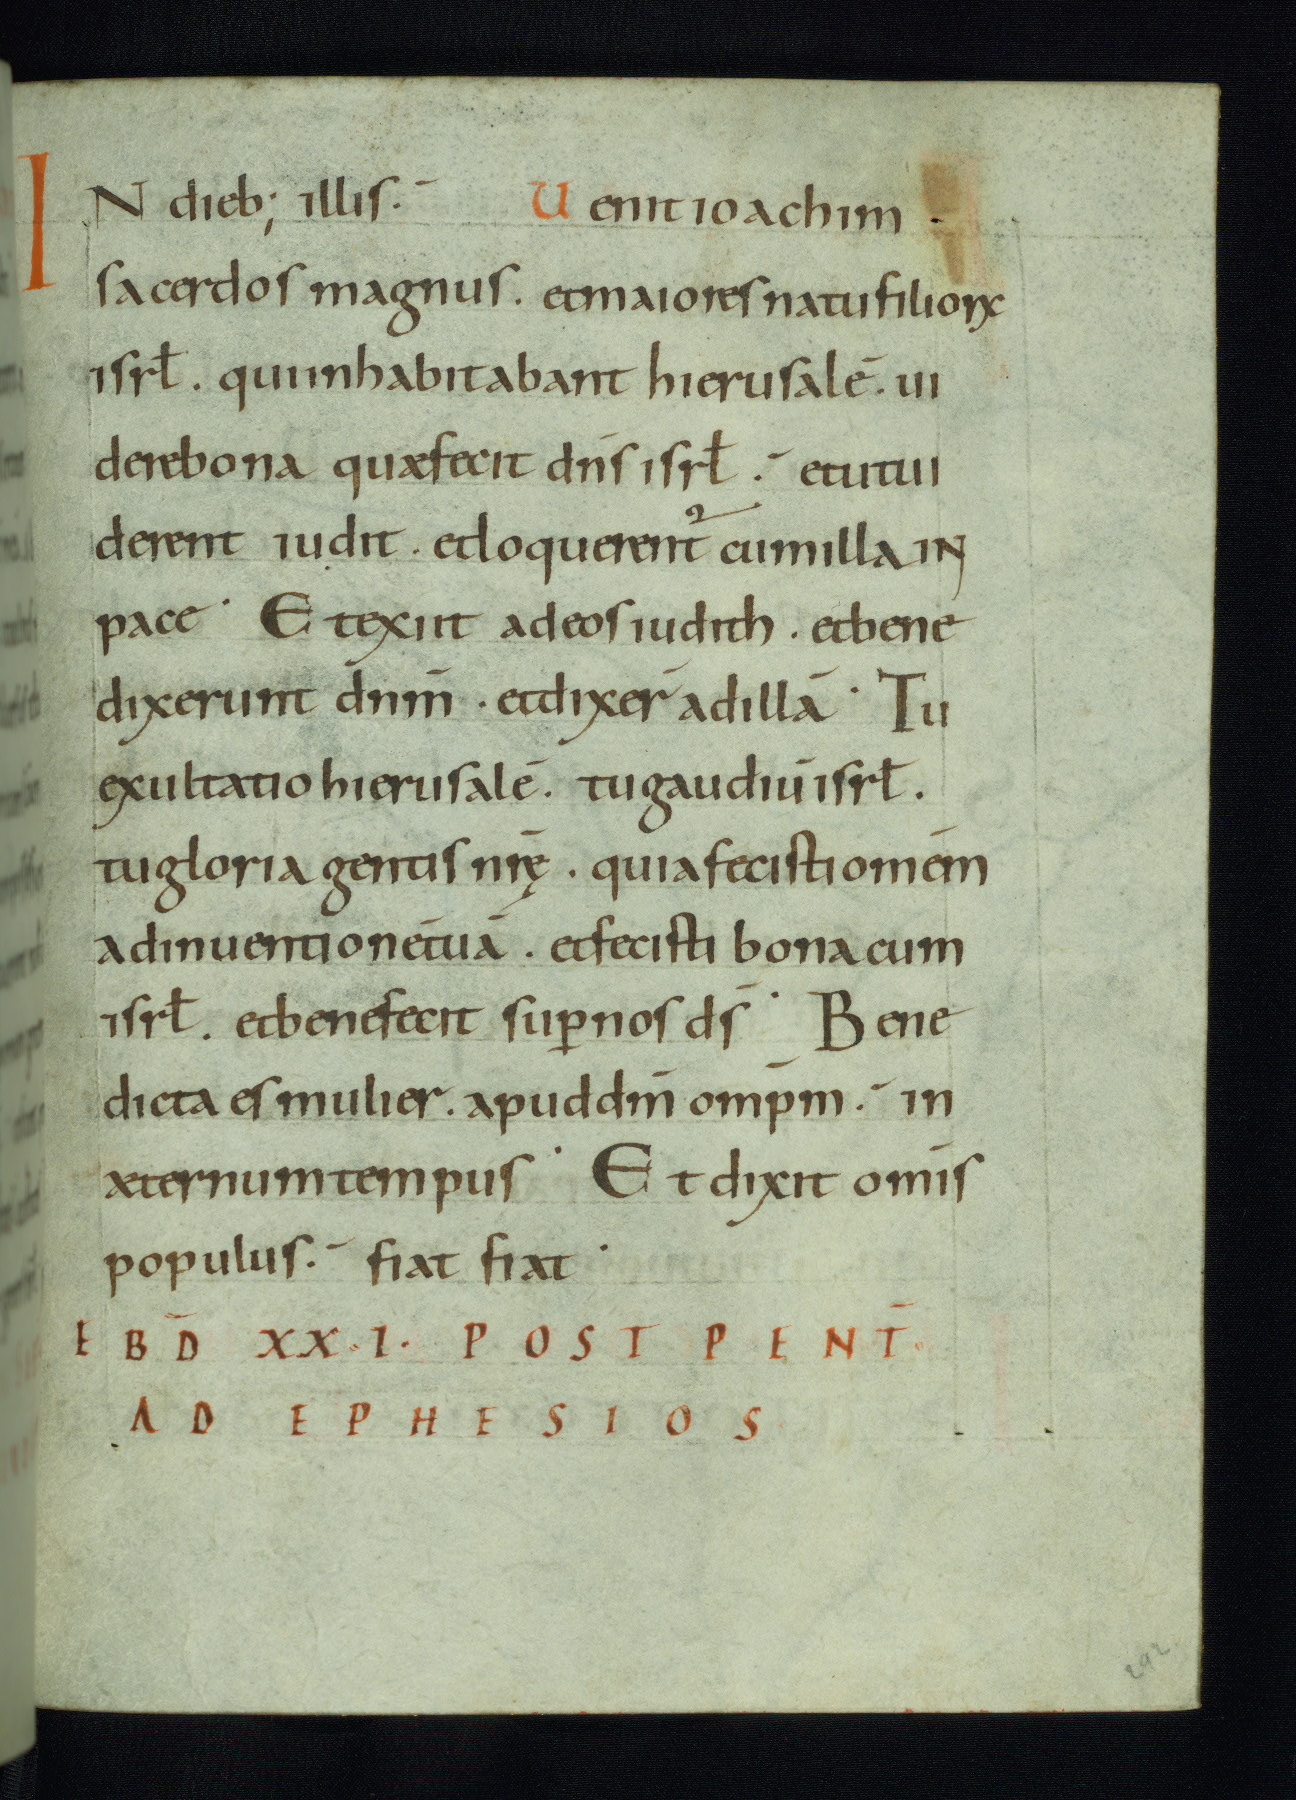 IN dieb; illis.  Uenit ioachim
sacerdos magnus. et maiores natu filioꝝ
isrł. qui inhabitabant hierusalē. ui
dere bona quæ fecit dn̄s isrł. et ut ui
derent iudit. et loquerent᷑ cum illa IN
pace. Et exiit ad eos iudith. et bene
dixerunt dnm̄. et dixer̄ ad illā. Tu
exultatio hierusalē. tu gaudiū isrł.
tu gloria gentis nr̄ę. quia fecisti omēm
adinuentionē tuā. et fecisti bona cum
isrł. et benefecit sup̱ nos ds̄. Bene
dicta es mulier. apud dm̄ omp̄m. in
æternum tempus. Et dixit om̄is
populus. fiat fiat.
EBD̄ XX.I. POST PENT̄.
AD EPHESIOS
292